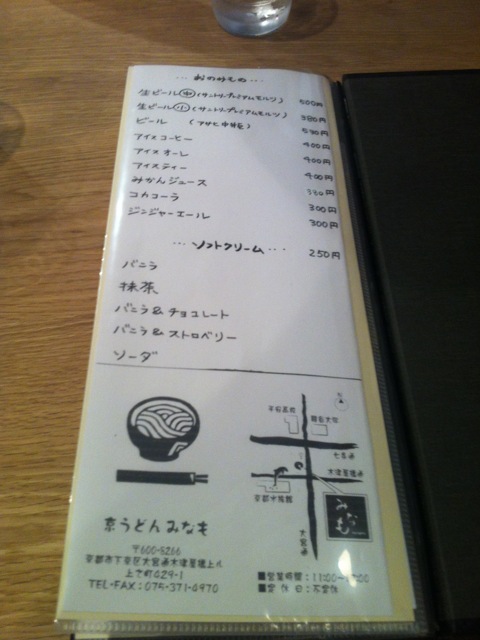 … おのみもの …
生ビール 中 (サントリープレミアムモルツ) 500円
生ビール 小 (サントリープレミアムモルツ) 380円
ビール (アサヒ中瓶) 530円
アイスコーヒー 400円
アイスオーレ 400円
アイスティー 400円
みかんジュース 330円
コカコーラ 300円
ジンジャーエール 300円
… ソフトクリーム … 250円
バニラ
抹茶
バニラ & チョコレート
バニラ & ストロベリー
ソーダ
平安高校
龍谷大学
七条通
木津屋橋通
京都水族館
みなも
大宮通
京うどん みなも
〒600-8266
京都市下京区大宮通木津屋橋上ル
上之町429-1
TEL・FAX:075-371-0970
■営業時間:11:00~
■定休日:不定休